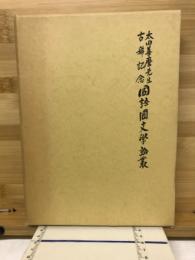 太田善麿先生
古稀記念
国語国文学論叢